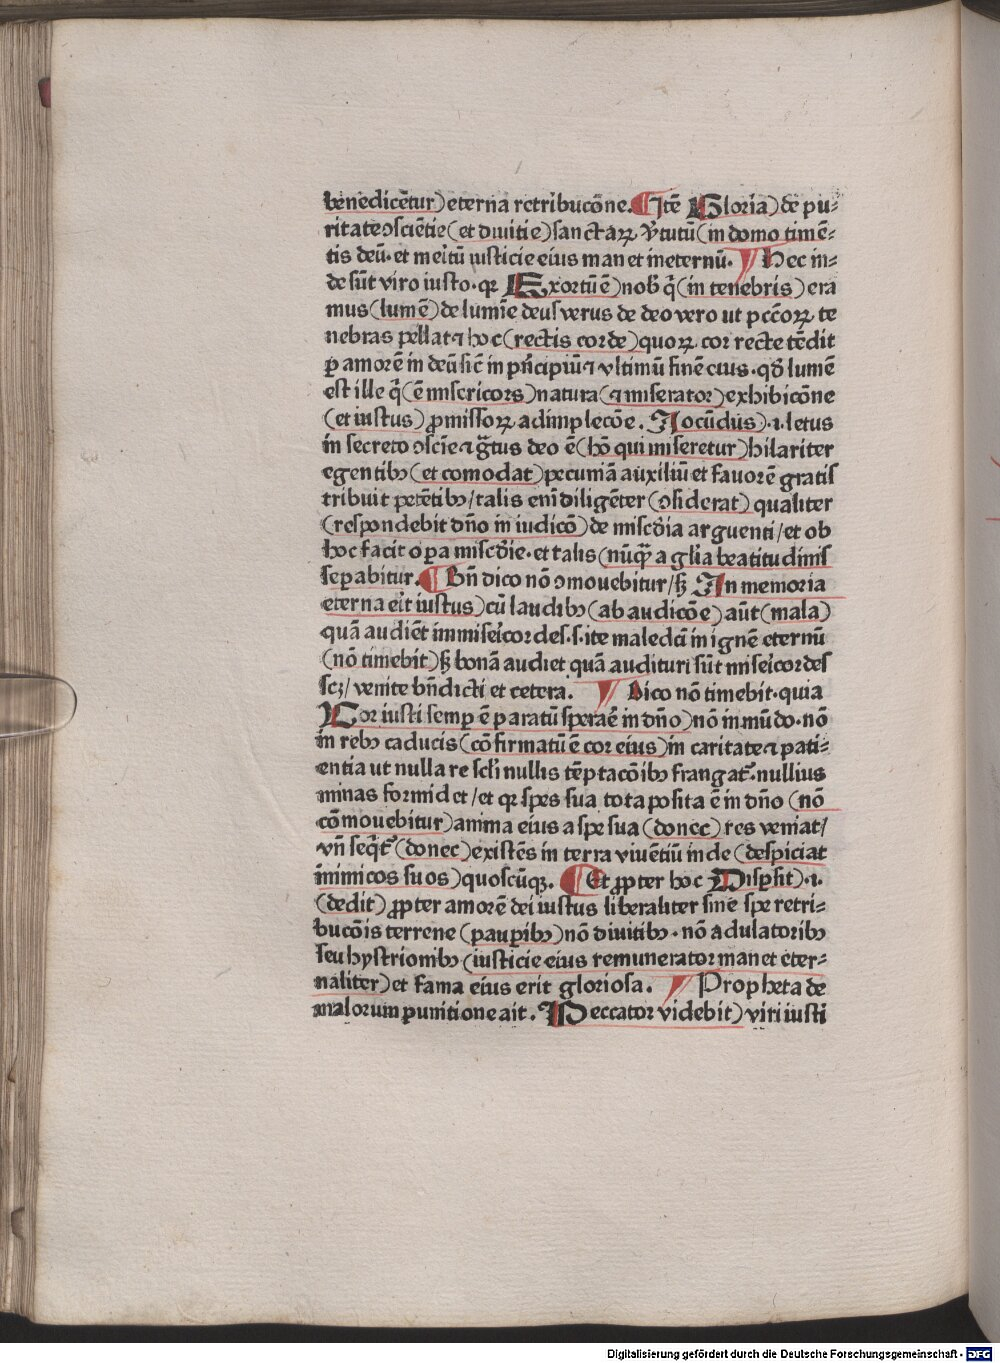 benedicētur) eterna retribucōne. ¶ Itē Gloria) de pu-
ritate ↄsciētie (et diuitie) sanctaꝝ v̄tutū (in domo timē-
tis deū. et meritū iusticie eius manet ineternū. ¶ Hec in-
de sūt viro iusto. qꝛ Exortū ē) nob̄ q̄ (in tenebris) era
mus (lumē) de lumīe deus verus de deo vero ut pccōꝝ te
nebras pellat ⁊ hoc (rectis corde) quoꝝ cor recte tēdit
ꝑ amorē in deū sic̄ in pn̄cipiū ⁊ vltimū finē eius. qd̄ lumē
est ille q̄ (ē misericors) natura (⁊ miserator) exhibicōne
(et iustus) ꝓmissoꝝ adimplecōe. Iocūdus) .i. letus
in secreto ↄscīe ⁊ gr̄tus deo ē (hō qui miseretur) hilariter
egentibꝰ (et comodat) pecuniā auxiliū et fauorē gratis
tribuit petētibꝰ / talis eni diligēter (ↄsiderat) qualiter
(respondebit dn̄o in iudicō) de misc̄dia arguenti / et ob
hoc facit oꝑa misc̄die. et talis (nūꝙ̄ a glīa beatitudinis
seꝑabitur. ¶ Bn̄ dico nō ↄmouebitur / sꝫ In memoria
eterna erit iustus) cū laudibꝰ (ab audicōe) aūt (mala)
quā audiēt immisericordes. s. ite maledcī in ignē eternū
(nō timebit) sꝫ bonā audiet quā audituri sūt misericordes
scꝫ / venite bn̄dicti et cetera. ¶ Dico nō timebit. quia
Cor iusti semꝑ ē paratū sperare in dn̄o) nō in mūdo. nō
in rebꝰ caducis (cōfirmatū ē cor eius) in caritate ⁊ pati-
entia ut nulla re scl̄i nullis tēptacōibꝰ frangat᷑. nullius
minas formidet / et qꝛ spes sua tota posita ē in dn̄o (nō
cōmouebitur) anima eius a spe sua (donec) res veniat /
vn̄ seq̄t᷑ (donec) existēs in terra viuētiū inde (despiciat
inimicos suos) quoscūqꝫ. ¶ Et ꝓpter hoc Dispsit) .i.
(dedit) ꝓpter amorē dei iustus liberaliter sine spe retri-
bucōis terrene (pauꝑibꝰ) nō diuitibꝰ. nō adulatoribꝰ
seu hystrionibꝰ (iusticie eius remunerator manet eter-
naliter) et fama eius erit gloriosa. ¶ Propheta de
malorum punitione ait. Peccator videbit) viri iusti
Digitalisierung gefördert durch die Deutsche Forschungsgemeinschaft - DFG